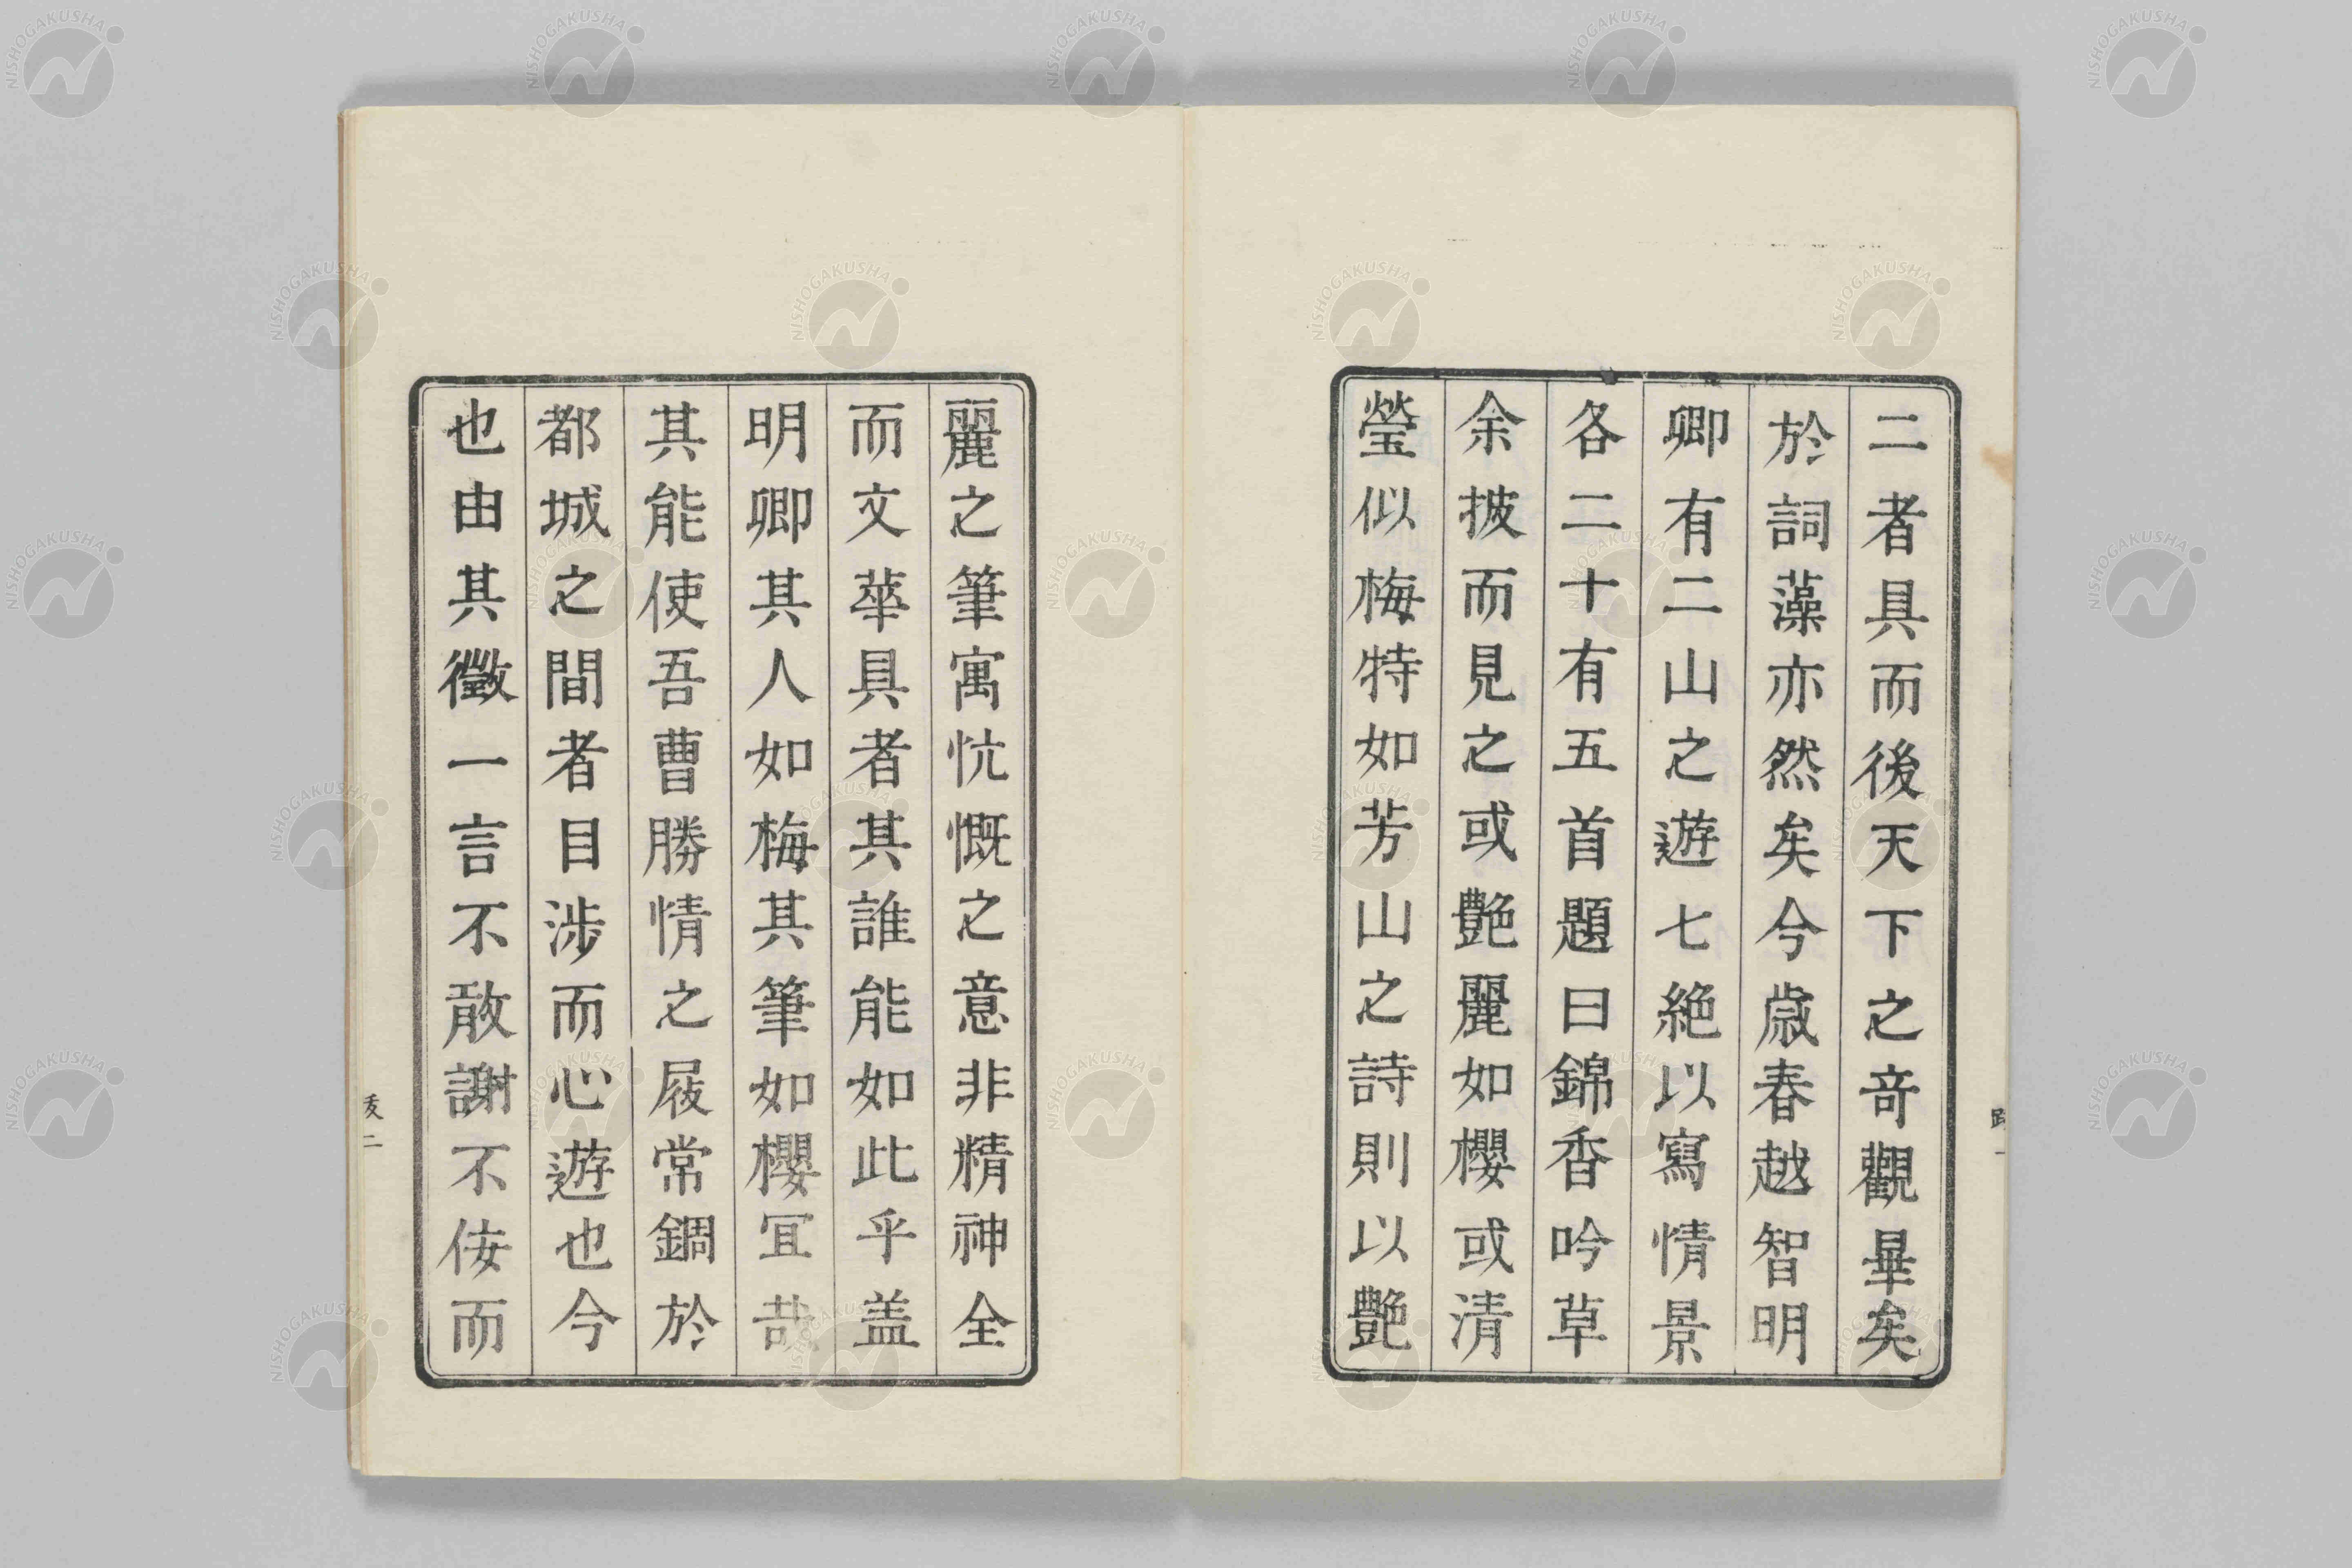 二者具而後天下之竒觀畢矣
於詞藻亦然矣今歳春越智明
卿有二山之遊七絶以寫情景
各二十有五首題曰錦香吟草
余披而見之或艷麗如櫻或清
瑩似梅特如芳山之詩則以艷
麗之筆寓忼慨之意非精神全
而文華具者其誰能如此乎盖
明卿其人如梅其筆如櫻冝哉
其能使吾曹勝情之屐常錮於
都城之間者目涉而心遊也今
也由其徵一言不敢謝不侫而
二
NISHOGAKUSHA